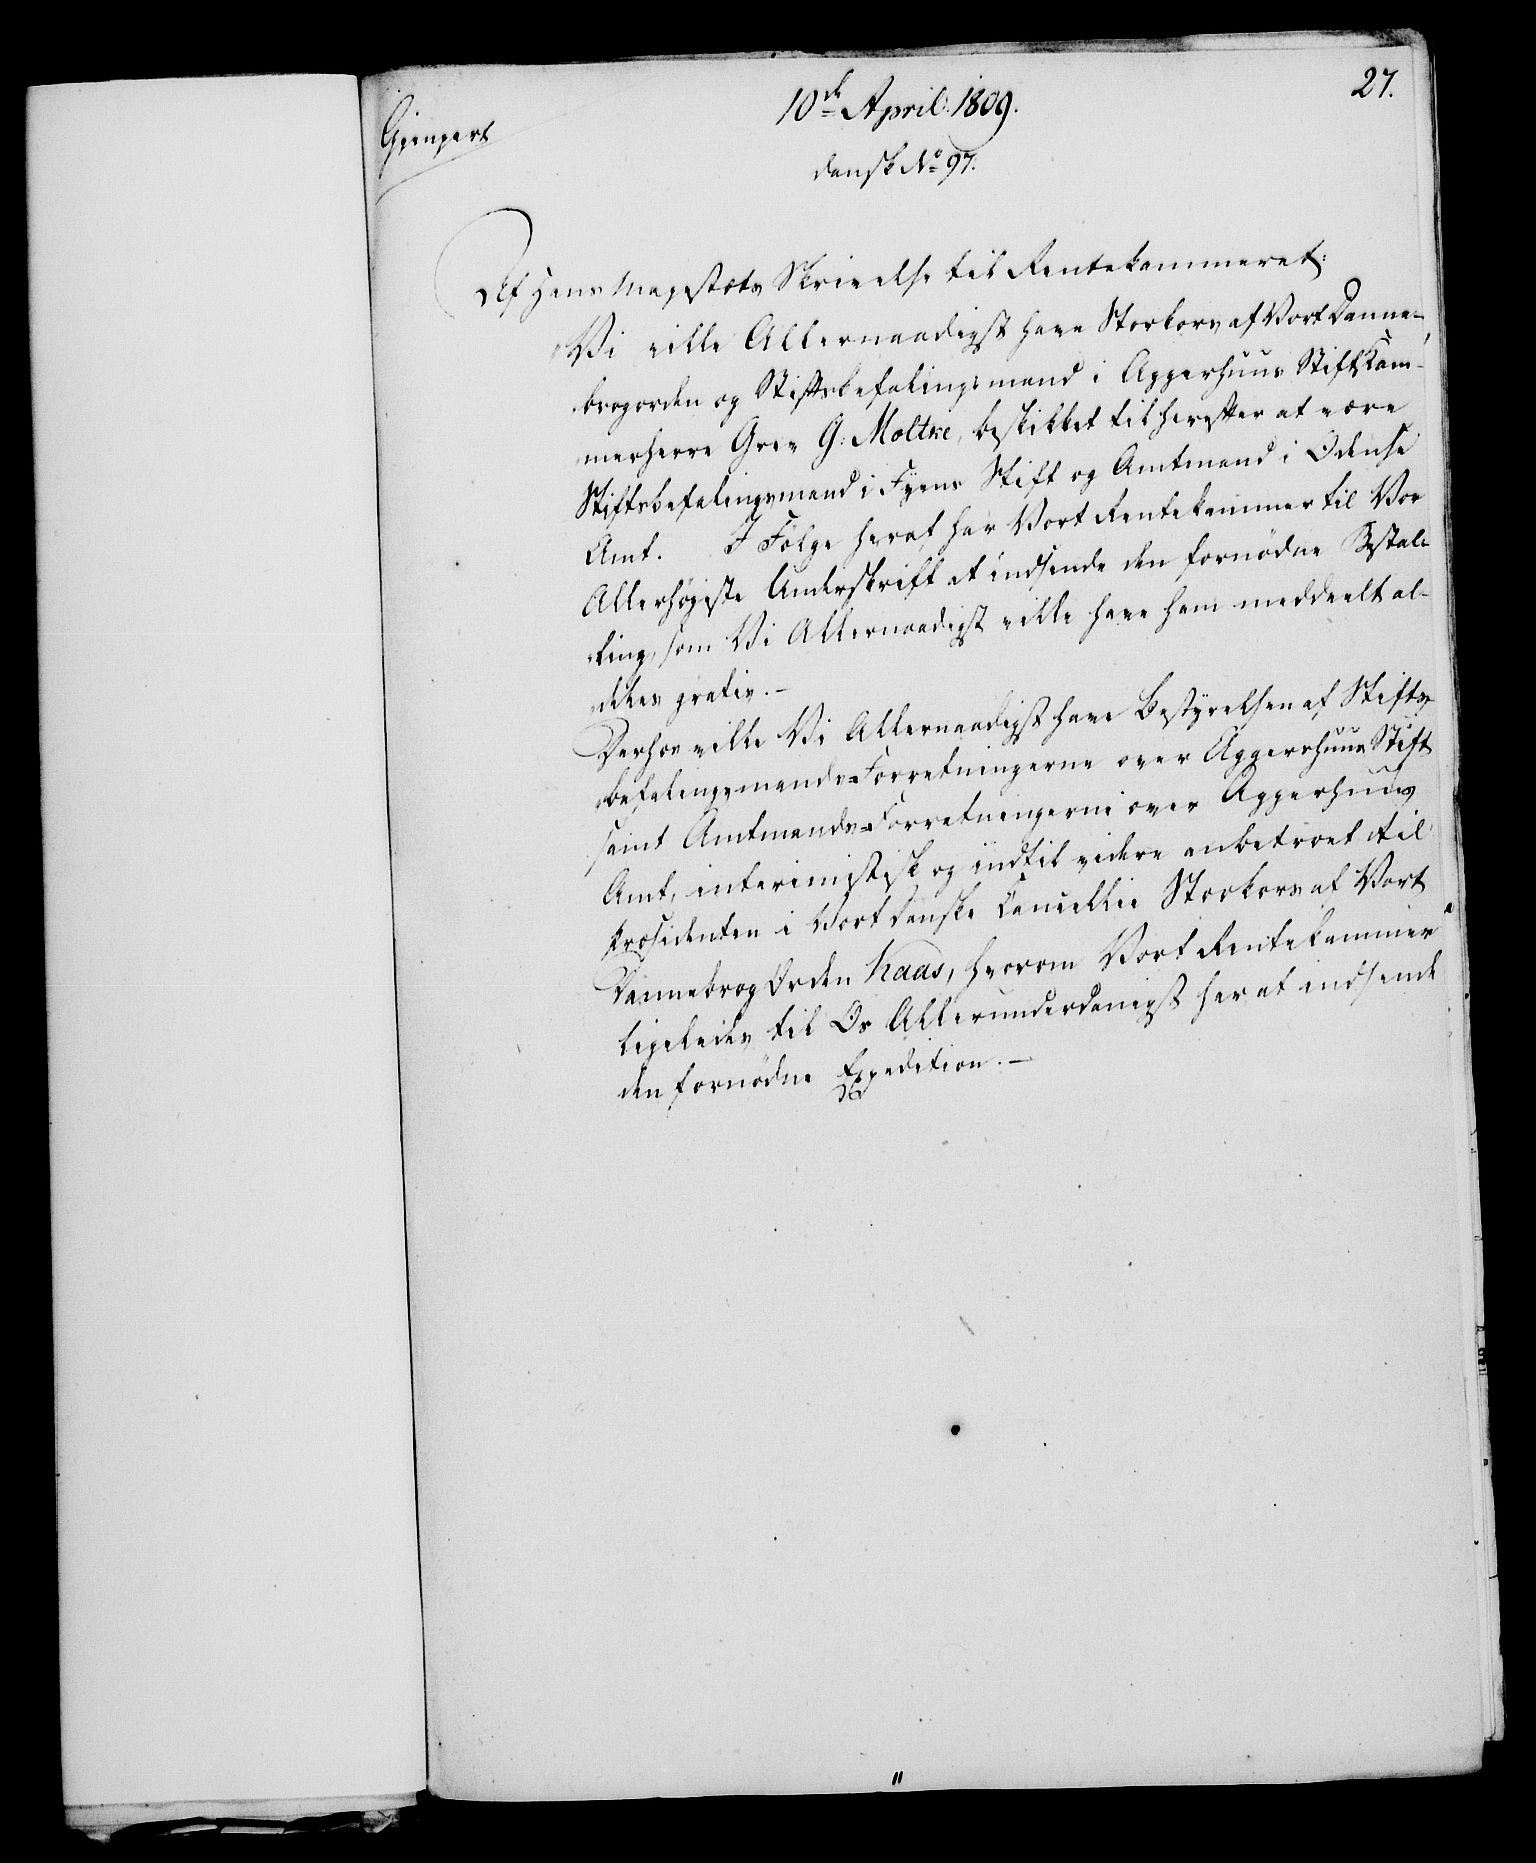 27.
10de April 1809.
Gienpart
dansk No 97.
Af Hans Majestæts Skrivelse til Rentekammeret:
Vi ville Allernaadigst have Storkors af Vort Danne-
brogorden og Stiftsbefalingsmand i Aggerhuus Stift, Kam-
merherre Grev G: Moltke, beskikket til herefter at være
Stiftsbefalingsmand i Fyens Stift og Amtmand i Odense
Amt. I Følge heraf har Vort Rentekammer til Vor
Allerhøieste Underskrift at indsende den fornødne Bestal-
ling, som Vi Allernaadigst ville have ham meddeelt al-
deles gratis. —
Derhos ville Vi Allernaadigst have Bestyrelsen af Stifts-
befalingsmands-Forretningerne over Aggershuus Stift
samt Amtmands-Forretningerne over Aggerhuus
Amt, interimistisk og indtil videre anbetroet til
Præsidenten i Vort danske Cancellie Storkors af Vort
Dannebrog Orden Kaas, hvorom Vort Rentekammer
ligeledes til Os Allerunderdanigst har at indsende
den fornødne Expedition. —